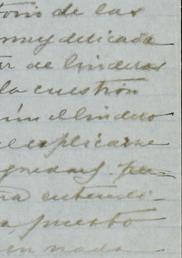 torio de las
muy delicada
ar de linderos
la cuestión
el lindero
explicarse
pe-
entendi-
puesto
en nada